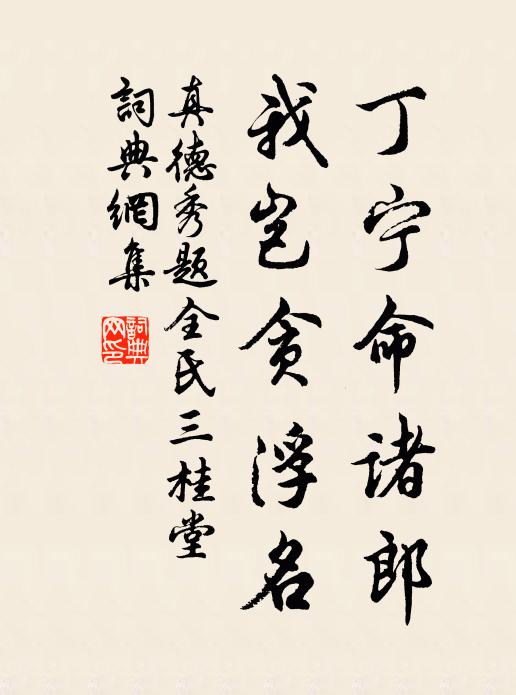 丁宁命诸郎
我岂贪浮名
真德秀题全氏三桂堂
詞典網集
詞典网印